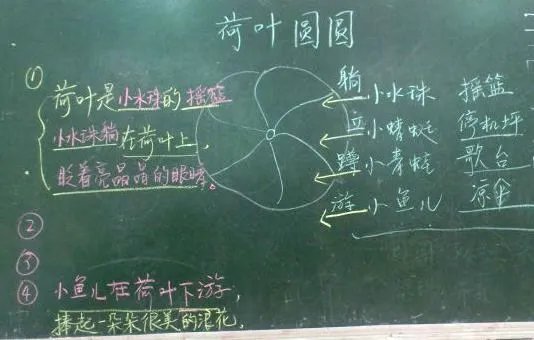 荷叶圆圆
① 荷叶是小水珠的摇篮
小水珠躺在荷叶上,
眨着亮晶晶的眼睛。
躺 小水珠 摇篮
立 小蜻蜓 停机坪
蹲 小青蛙 歌台
游 小鱼儿 凉伞
②
③
④ 小鱼儿在荷叶下游,
捧起一朵朵很美的浪花,